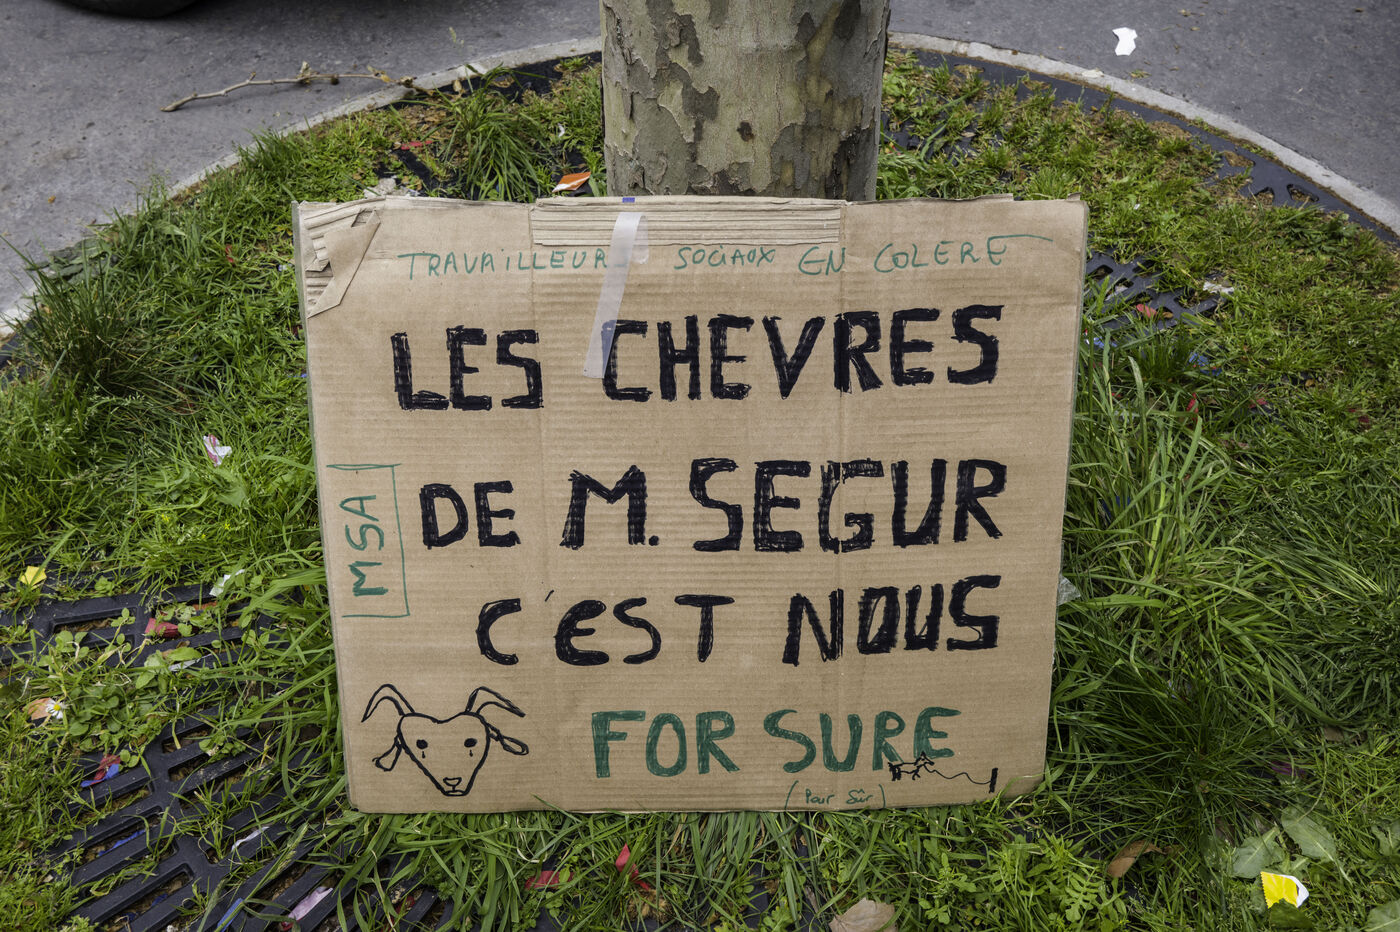 TRAVAILLEURS SOCIAUX EN COLERE
LES CHEVRES
DE M. SEGUR
MSA
C'EST NOUS
FOR SURE
(Pour Sûr)